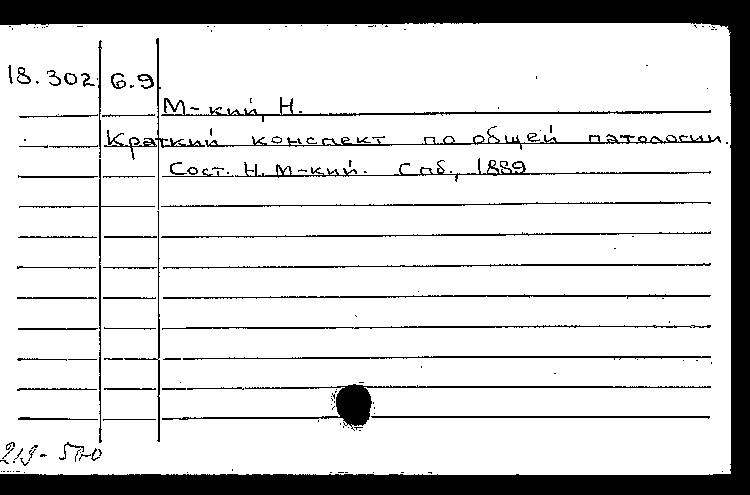 18.302. 6.9
М-кий, Н.
Краткий конспект по общей патологии.
Сост. Н. М-кий. Спб., 1889